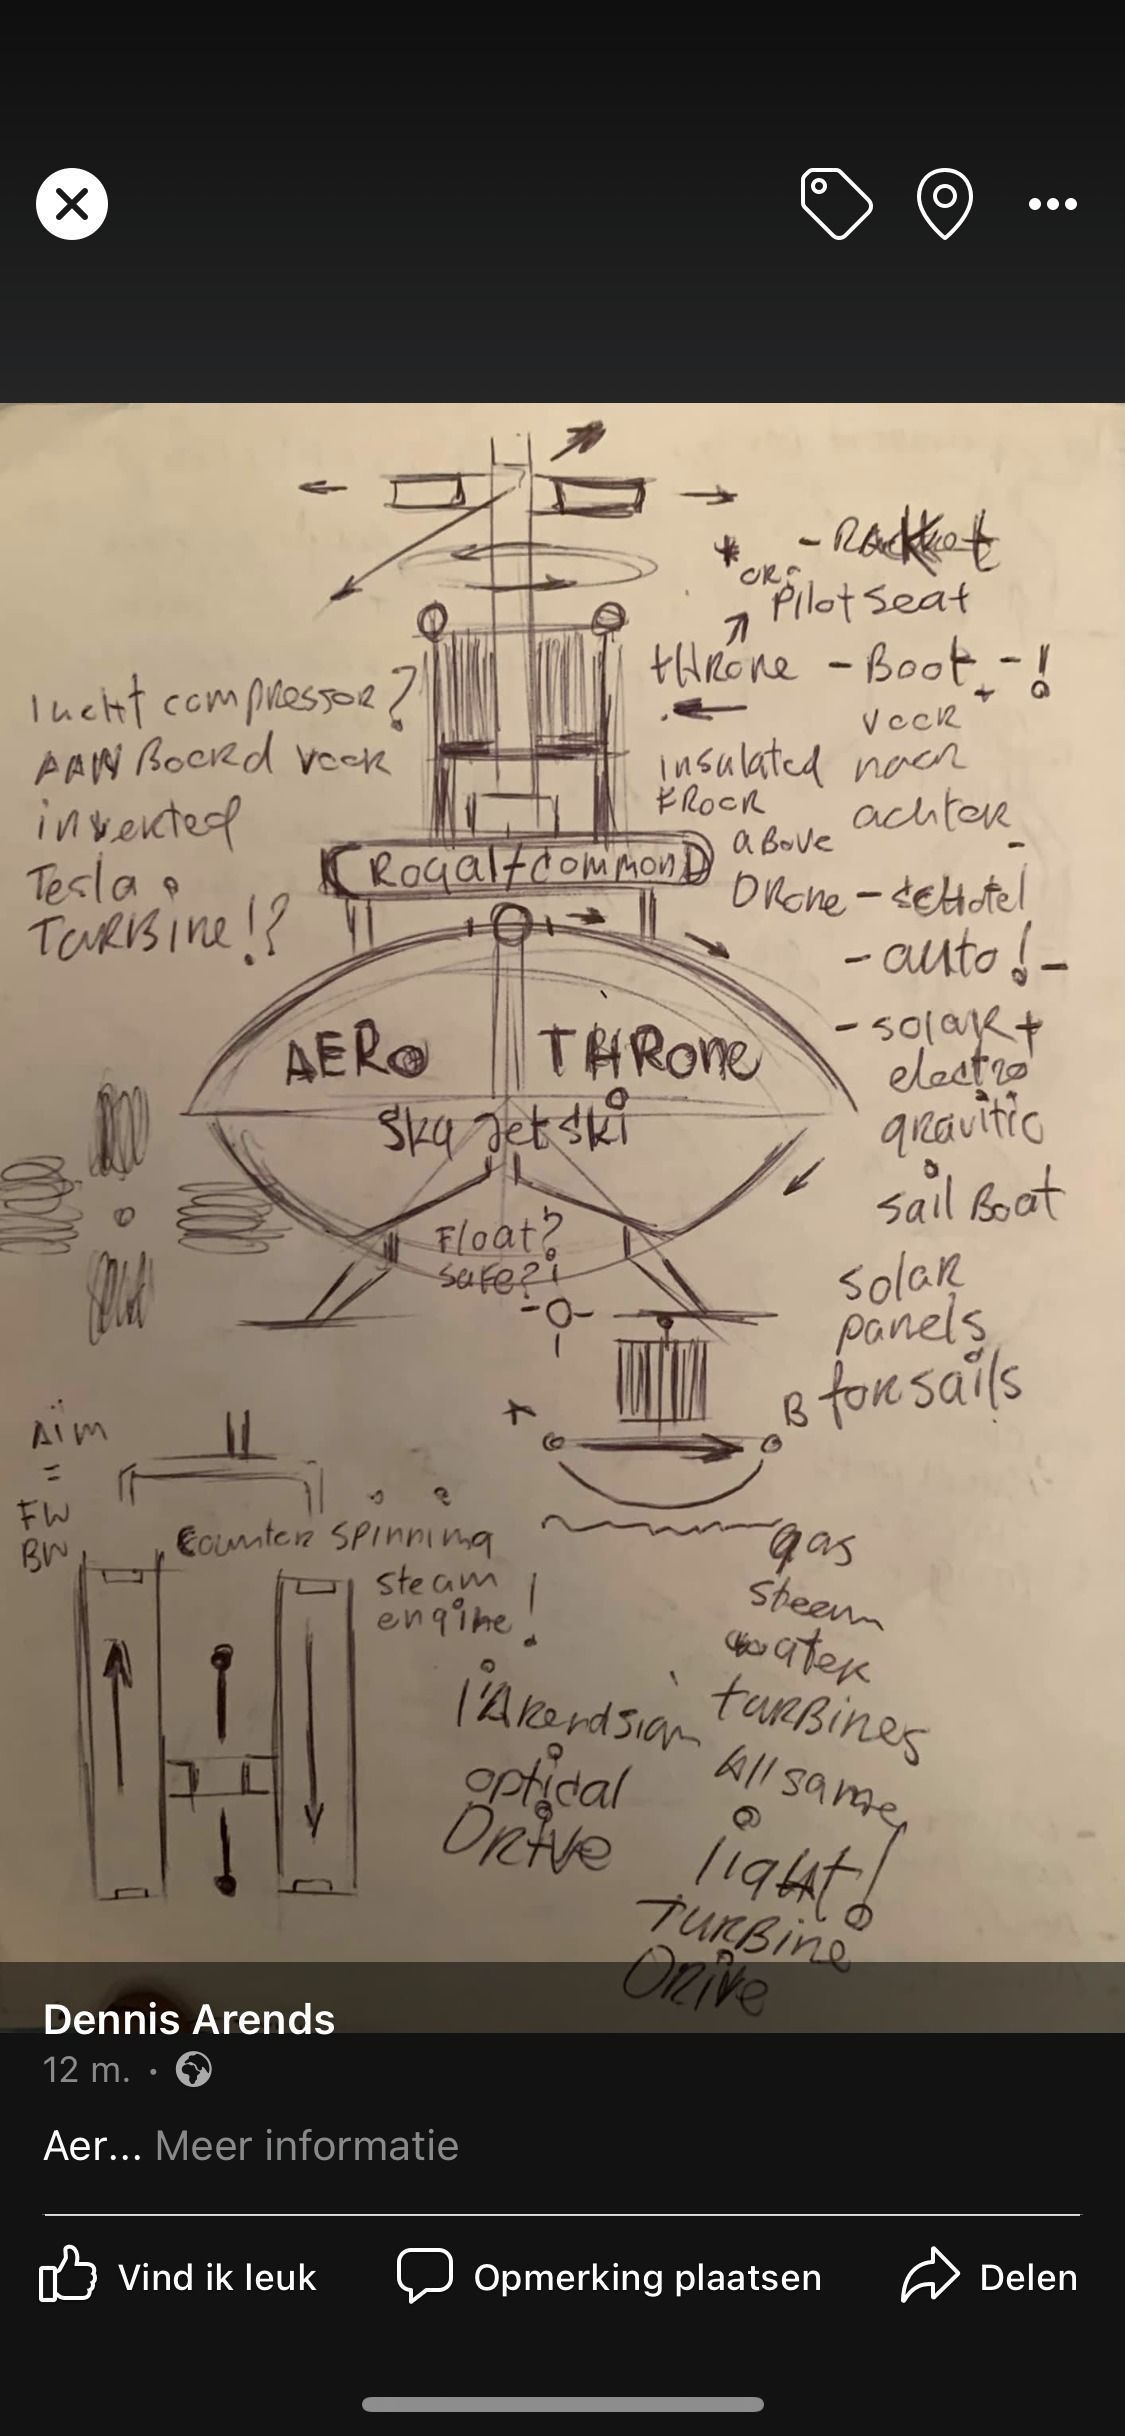 - Rakket
* OR:
Pilot seat
tHRone - Boot -!
voor
insulated naar
FROCR
achter
above
Drone - scHotel
- auto! -
- solar +
electro
gravitic
sail Boat
solar
panels
for sails
lucHt compressor?
AAN Boord voor
inverted
Tesla
TURBine!?
Royal + common
AERo THRone
Sky Jet Ski
Float?
safe?!
B
Aim
=
FW
BW
counter spinning
steam
engine!
l'Arendsian
optical
DRive
gas
steem
water
turBines
All same
light!
TurBine
DRive
Dennis Arends
12 m. ·
Aer... Meer informatie
Vind ik leuk
Opmerking plaatsen
Delen